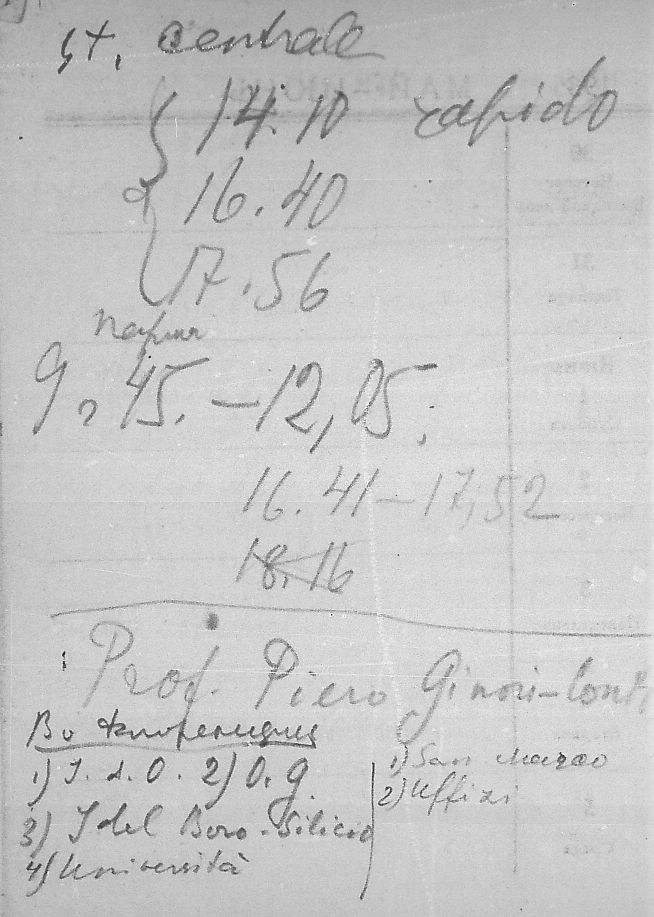 st. centrale
14.10 rapido
16.40
17.56
9,45. – 12,05.
16.41 – 17,52
18.16
Prof. Piero Ginori-Conti
Во Флоренции
1) I. d. O. 2) O. g.
3) I del Boro-Silicio
4) Università
1) San Marco
2) Uffizi